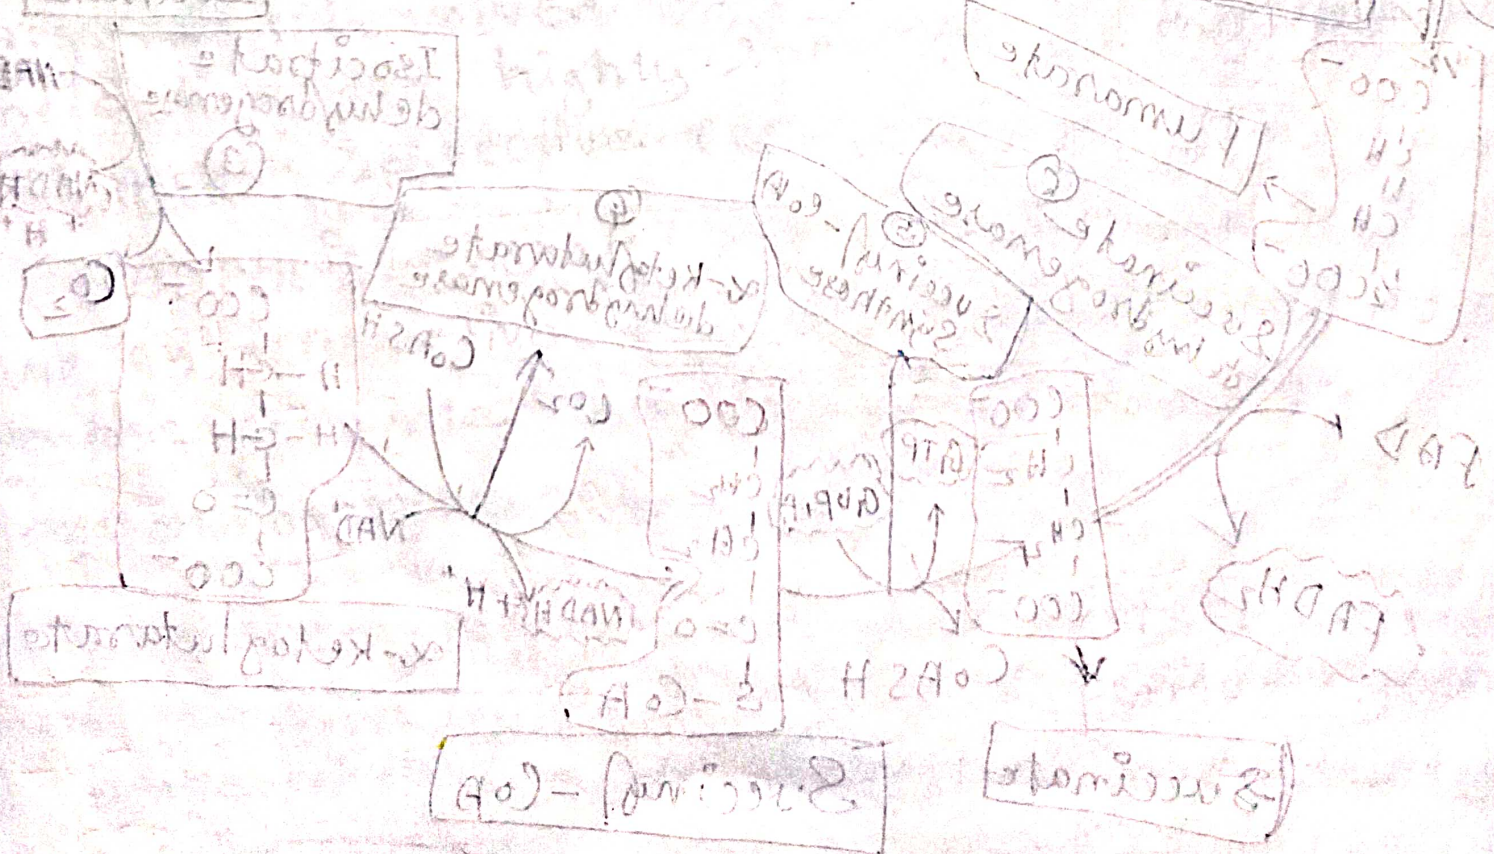 Isocitrate
dehydrogenase
③
CO₂
COO⁻
H-C-H
H-C-H
C=O
COO⁻
α-ketoglutarate
④
α-ketoglutarate
dehydrogenase
CoASH
CO₂
NAD⁺
NADH+H⁺
COO⁻
CH₂
CH₂
C=O
S-CoA
Succinyl-CoA
⑤
Succinyl-CoA
Synthase
GDP+Pi
GTP
CoASH
COO⁻
CH₂
CH₂
COO⁻
Succinate
⑥
Succinate
dehydrogenase
FAD
FADH₂
COO⁻
CH
CH
COO⁻
Fumarate